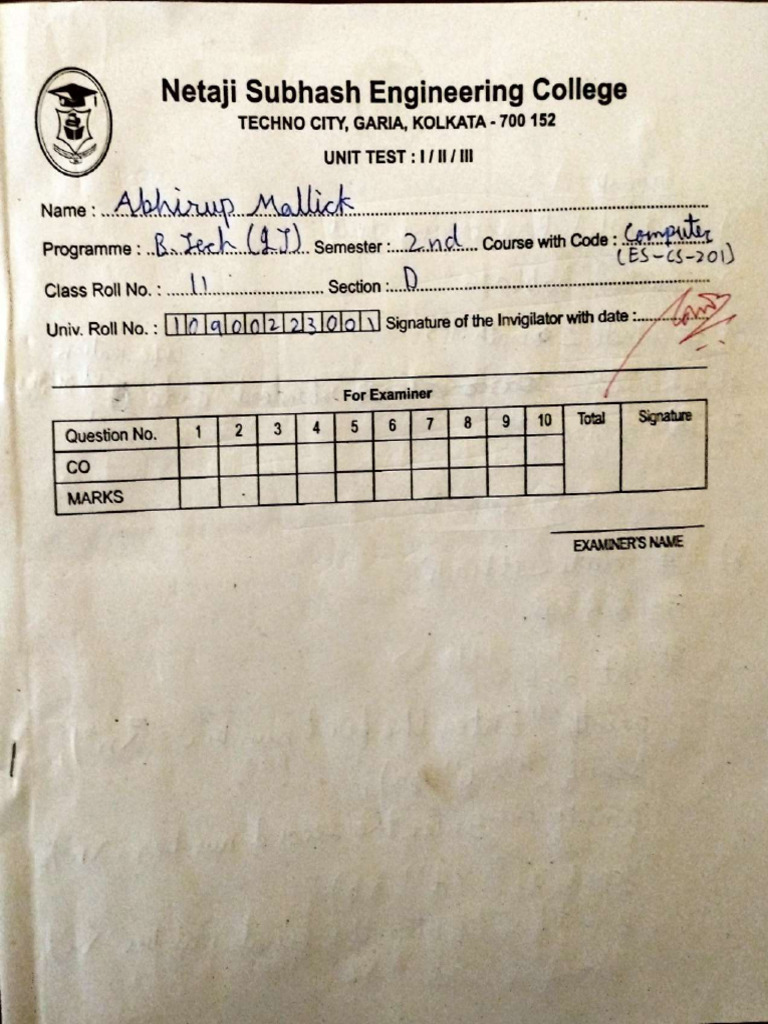 Netaji Subhash Engineering College
TECHNO CITY, GARIA, KOLKATA - 700 152
UNIT TEST : I / II / III
Name : Abhirup Mallick
Programme : B.Tech (IT) Semester : 2nd Course with Code : Computer
(ES-CS-201)
Class Roll No. : 11 Section : D
Univ. Roll No. : 10900223001 Signature of the Invigilator with date :
For Examiner
Question No. 1 2 3 4 5 6 7 8 9 10 Total Signature
CO
MARKS
EXAMINER'S NAME